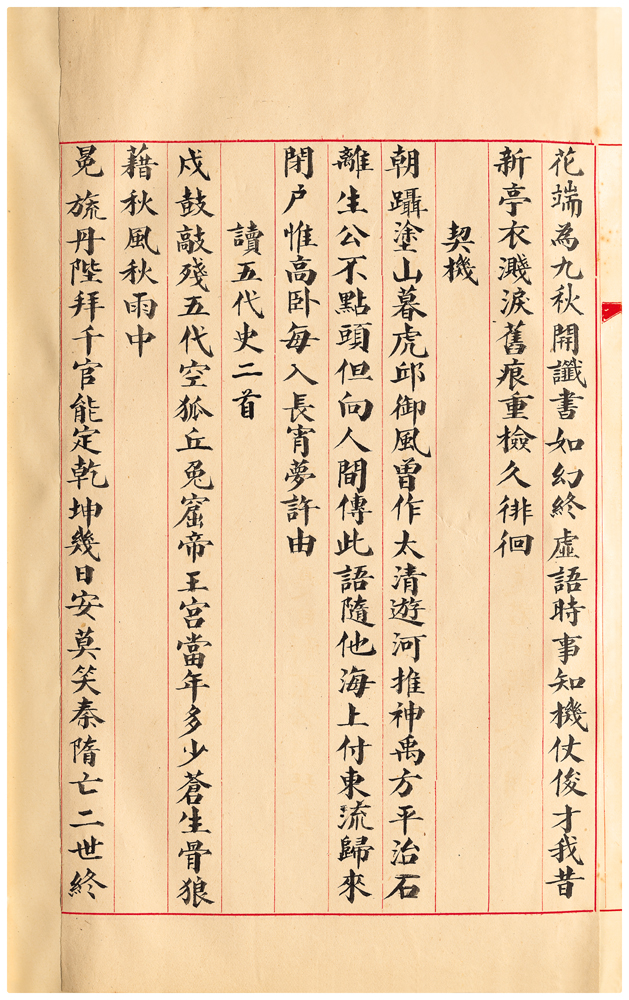 花端為九秋開讖書如幻終虛語時事知機仗俊才我昔
新亭衣濺淚舊痕重檢久徘徊
契機
朝躡塗山暮虎邱御風曾作太清遊河推神禹方平治石
離生公不點頭但向人間傳此語隨他海上付東流歸來
閉戶惟高卧每入長宵夢許由
讀五代史二首
戍鼓敲殘五代空狐丘兔窟帝王宮當年多少蒼生骨狼
藉秋風秋雨中
冕旒丹陛拜千官能定乾坤幾日安莫笑秦隋亡二世終